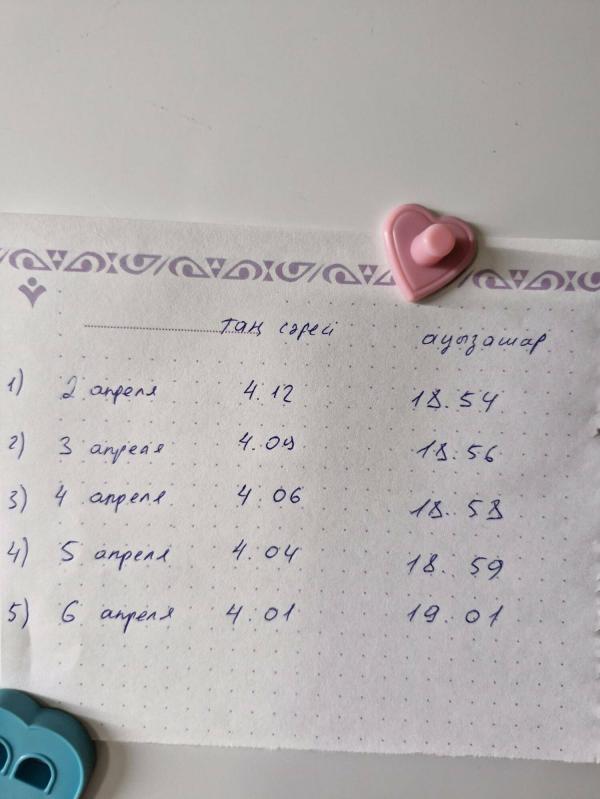 таң сәресі ауызашар
1) 2 апреля 4.12 18.54
2) 3 апреля 4.09 18.56
3) 4 апреля 4.06 18.58
4) 5 апреля 4.04 18.59
5) 6 апреля 4.01 19.01